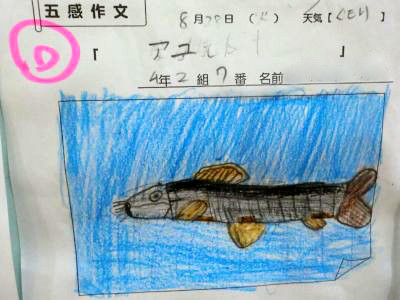 五感作文
8月 日( ) 天気【くもり】
D
「アユ 」
4年2組7番 名前